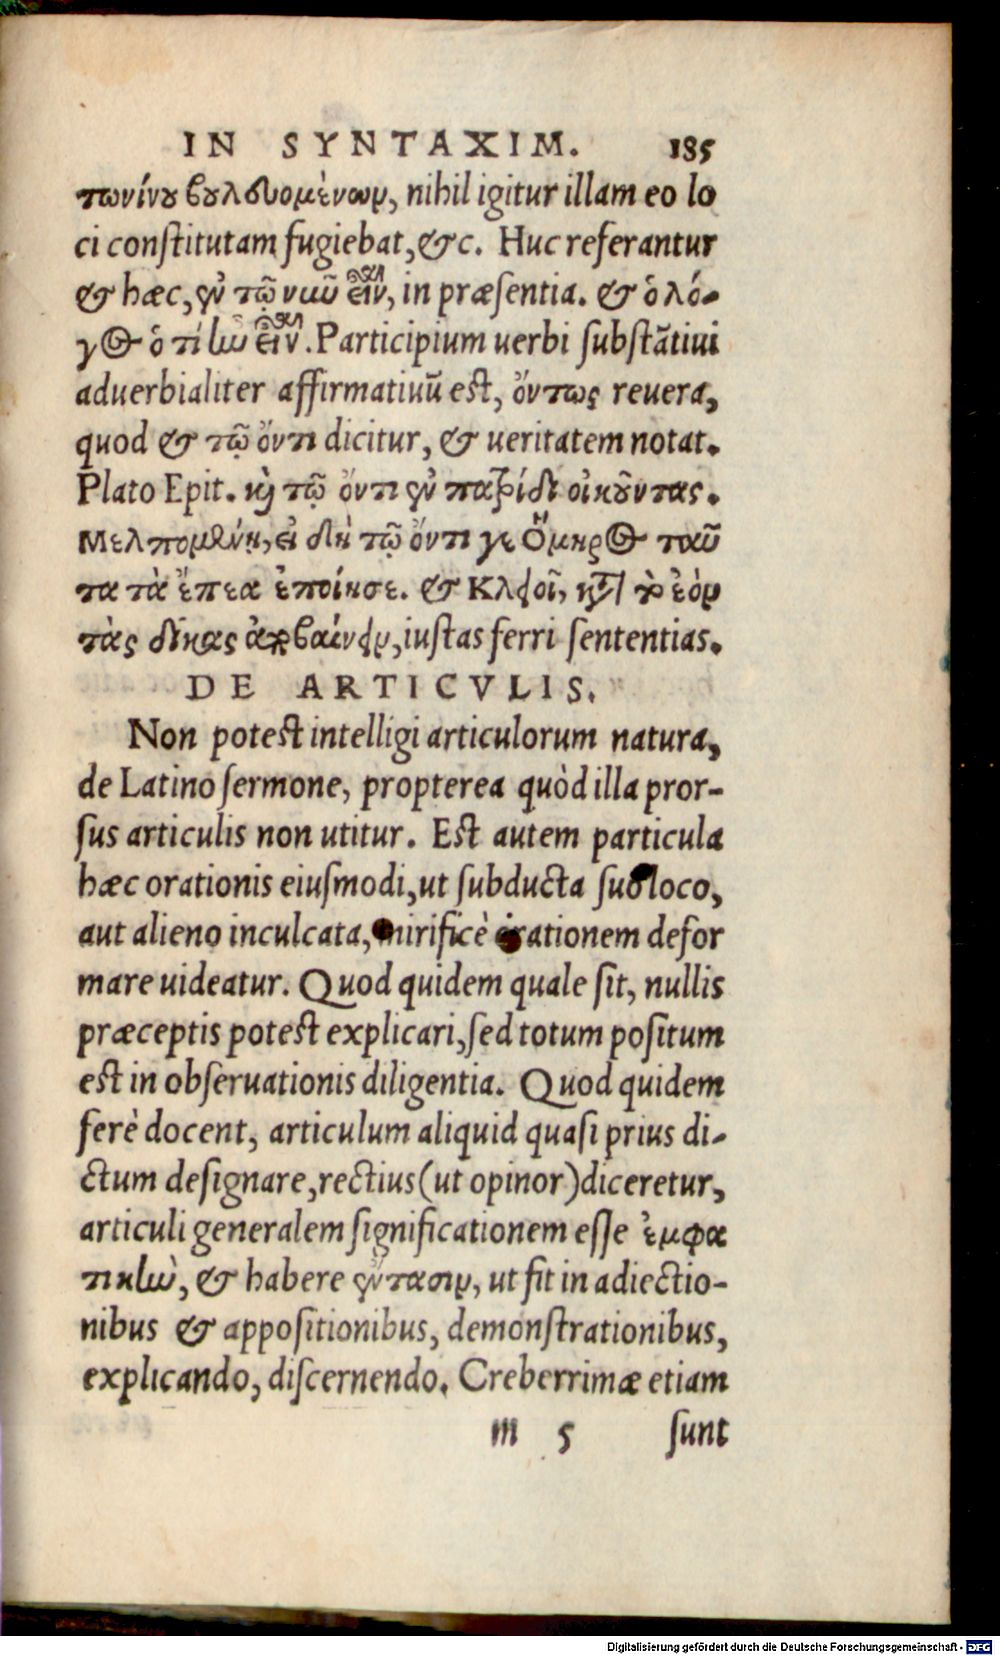 IN SYNTAXIM. 185
πωνίνου βουλευομένων, nihil igitur illam eo lo
ci constitutam fugiebat, &c. Huc referantur
& hæc, ἐν τῷ νῦν εἶναι, in præsentia. & ὁ λό-
γος ὅτι ἦν εἶναι. Participium uerbi substãtiui
aduerbialiter affirmatiuũ est, ὄντως reuera,
quod & τῷ ὄντι dicitur, & ueritatem notat.
Plato Epit. καὶ τῷ ὄντι ἐν πατρίδι οἰκοῦντας.
Μελπομένῃ, εἰ δὴ τῷ ὄντι γε Ὅμηρος ταῦ
τα τὰ ἔπεα ἐποίησε. & Κλειοῖ, κατὰ τὸ ἐὸν
τὰς δίκας ἀποβαίνειν, iustas ferri sententias.
DE ARTICVLIS.
Non potest intelligi articulorum natura,
de Latino sermone, propterea quòd illa pror-
sus articulis non utitur. Est autem particula
hæc orationis eiusmodi, ut subducta suo loco,
aut alieno inculcata, mirificè orationem defor
mare uideatur. Quod quidem quale sit, nullis
præceptis potest explicari, sed totum positum
est in obseruationis diligentia. Quod quidem
ferè docent, articulum aliquid quasi prius di-
ctum designare, rectius (ut opinor) diceretur,
articuli generalem significationem esse ἐμφα
τικὴν, & habere ἔντασιν, ut fit in adiectio-
nibus & appositionibus, demonstrationibus,
explicando, discernendo. Creberrimæ etiam
m 5 sunt
Digitalisierung gefördert durch die Deutsche Forschungsgemeinschaft - DFG